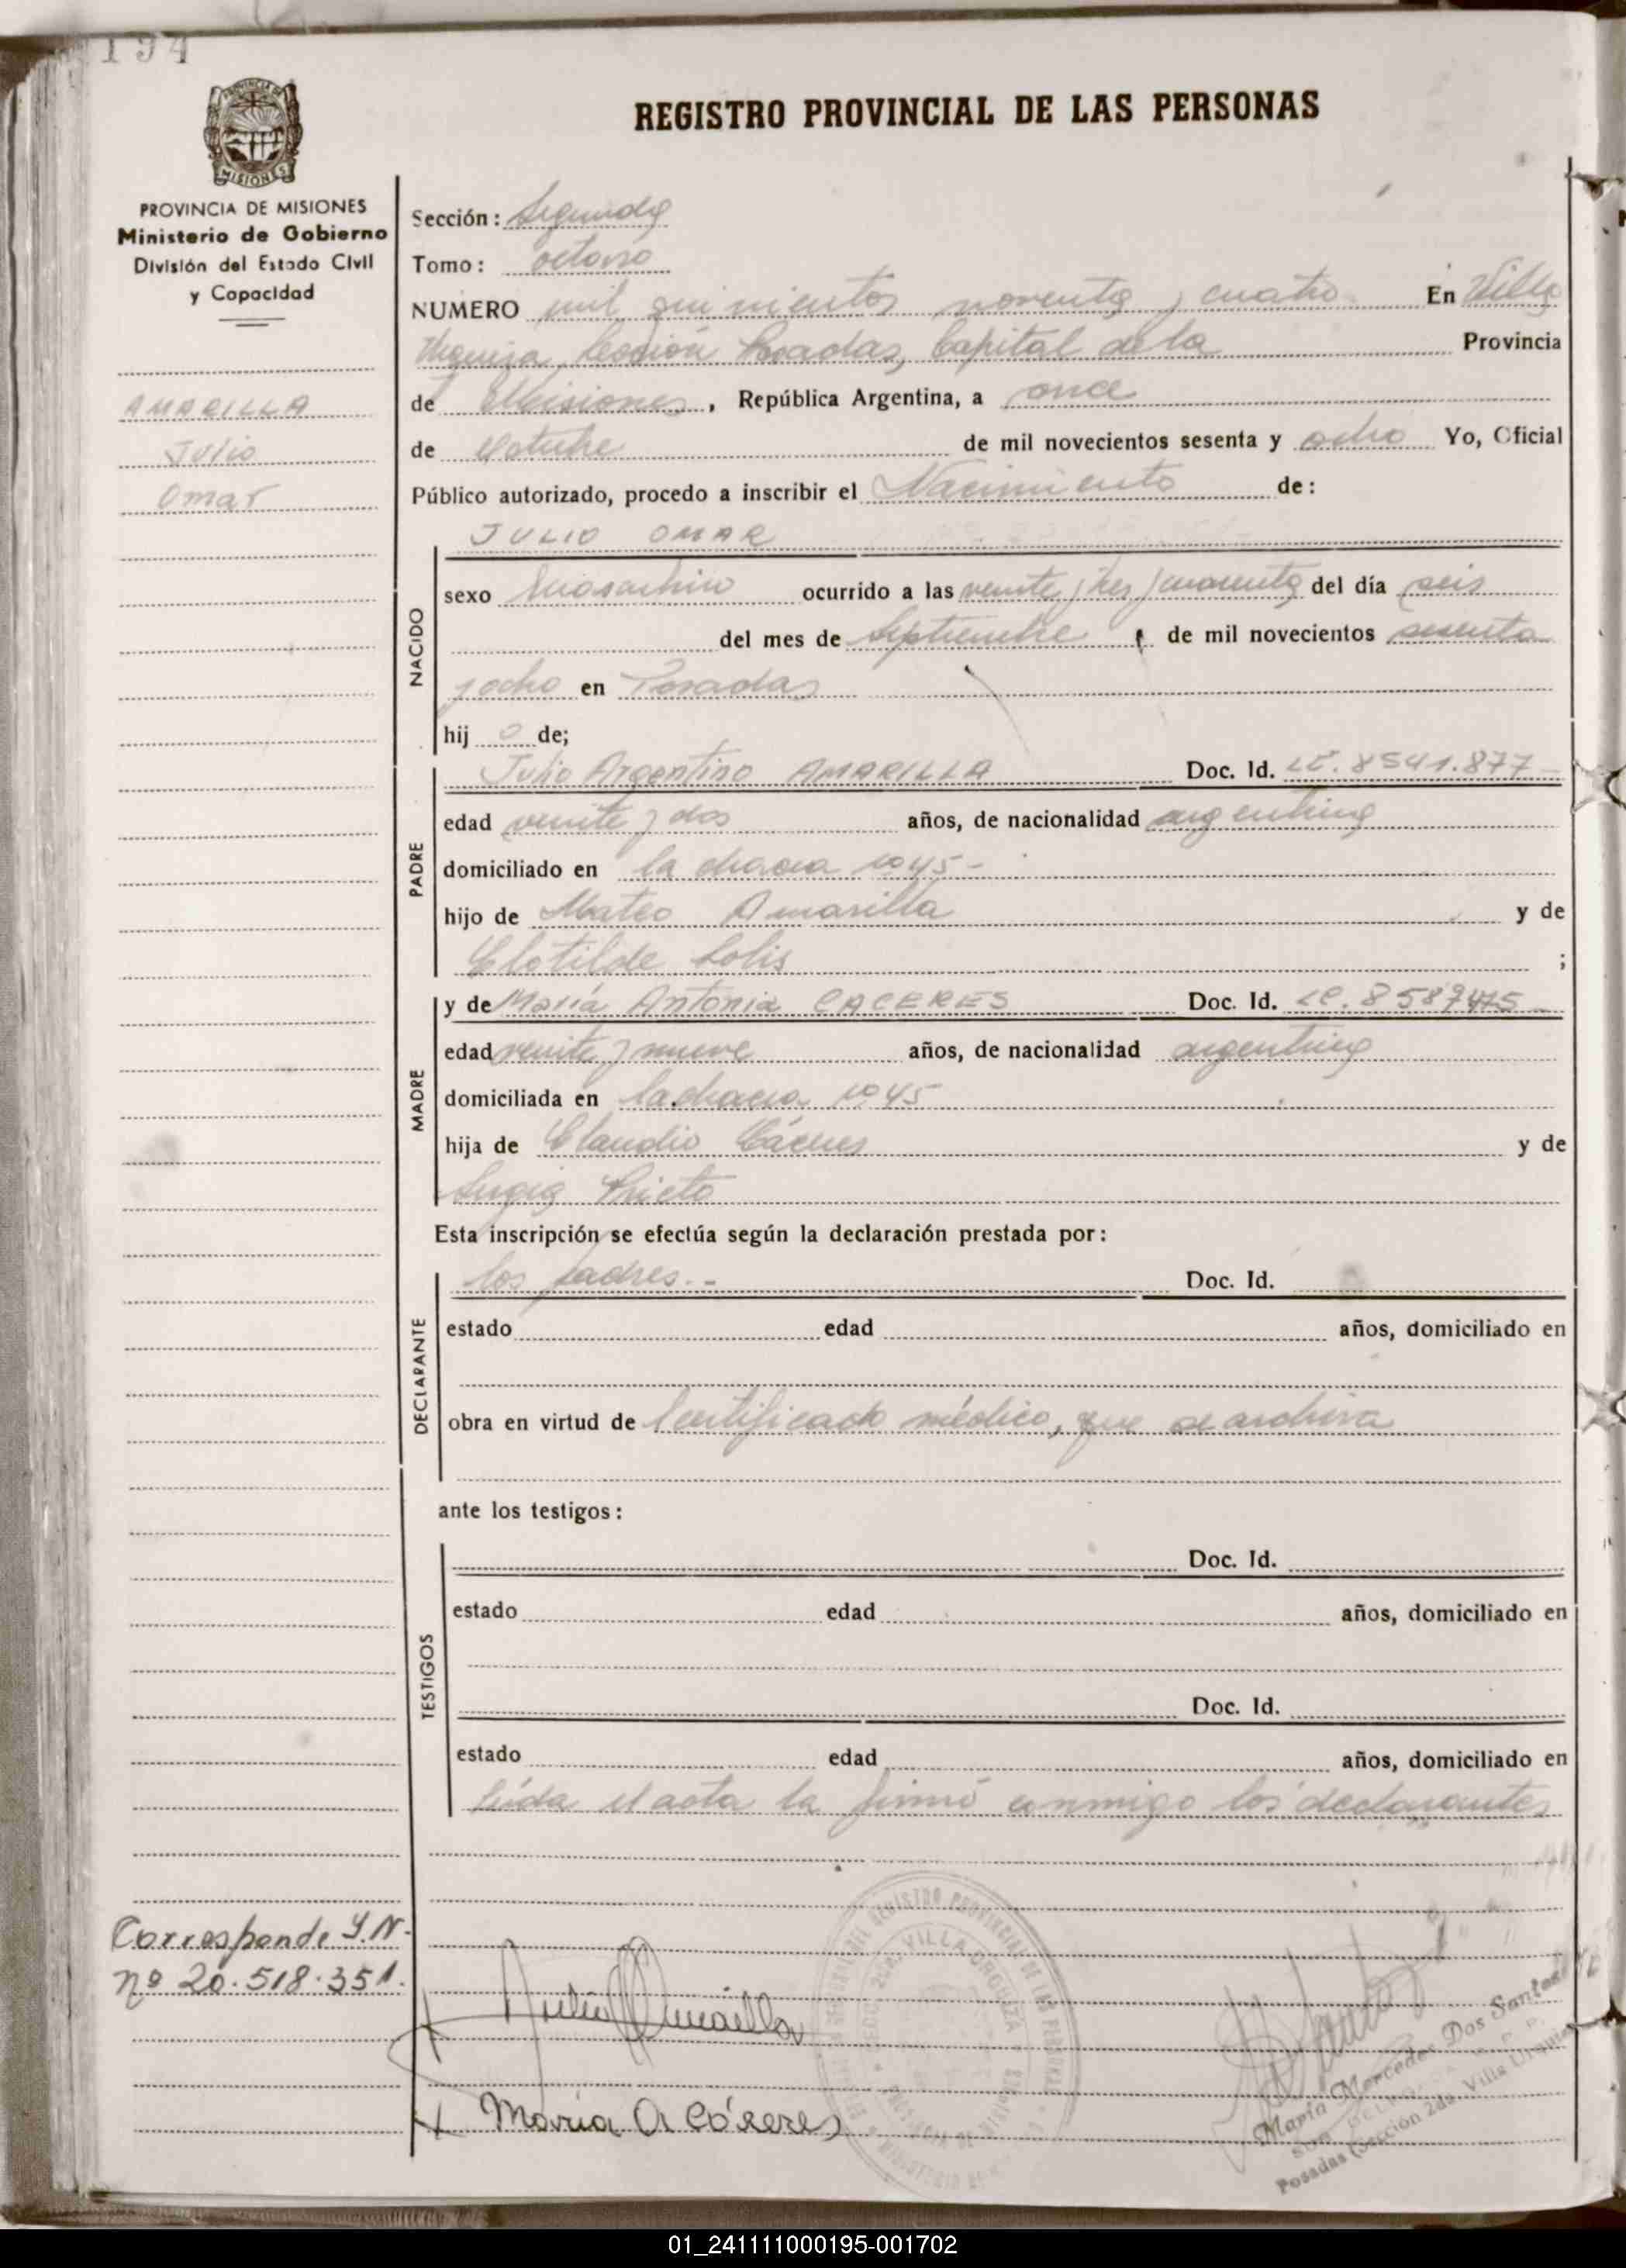 194
REGISTRO PROVINCIAL DE LAS PERSONAS
PROVINCIA DE MISIONES
Ministerio de Gobierno
División del Estado Civil
y Capacidad
AMARILLA
Julio
Omar
Sección: Segunda
Tomo: octavo
NUMERO mil quinientos noventa y cuatro En Villa
Urquiza, Sección Posadas, Capital de la Provincia
de Misiones, República Argentina, a once
de Octubre de mil novecientos sesenta y ocho Yo, Oficial
Público autorizado, procedo a inscribir el Nacimiento de:
JULIO OMAR
NACIDO
sexo Masculino ocurrido a las veinte y tres y cuarenta del día seis
del mes de Septiembre de mil novecientos sesenta
y ocho en Posadas
hij o de;
PADRE
Julio Argentino AMARILLA Doc. Id. LE. 8541.877-
edad veinte y dos años, de nacionalidad argentina
domiciliado en la chacra nº 45-
hijo de Mateo Amarilla y de
Clotilde Solis ;
MADRE
y de María Antonia CACERES Doc. Id. LC. 8587475-
edad veinte y nueve años, de nacionalidad argentina
domiciliada en la chacra nº 45
hija de Claudio Cáceres y de
Prieto
Esta inscripción se efectúa según la declaración prestada por:
DECLARANTE
los padres.- Doc. Id.
estado edad años, domiciliado en
obra en virtud de certificado médico, que se archiva
ante los testigos:
TESTIGOS
Doc. Id.
estado edad años, domiciliado en
Doc. Id.
estado edad años, domiciliado en
Leída el acta la firmó conmigo los declarantes
Corresponde I.N.
nº 20.518.351.
Julio Amarilla
María A Cáceres
VILLA URQUIZA
María Mercedes Dos Santos
Posadas (Sección 2da. Villa Urquiza
01_241111000195-001702